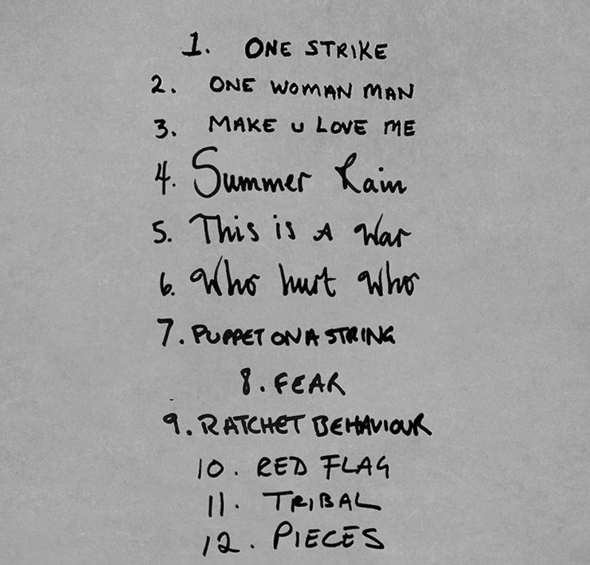 1. ONE STRIKE
2. ONE WOMAN MAN
3. MAKE U LOVE ME
4. Summer Rain
5. This is A War
6. Who hurt Who
7. PUPPET ON A STRING
8. FEAR
9. RATCHET BEHAVIOUR
10. RED FLAG
11. TRIBAL
12. PIECES